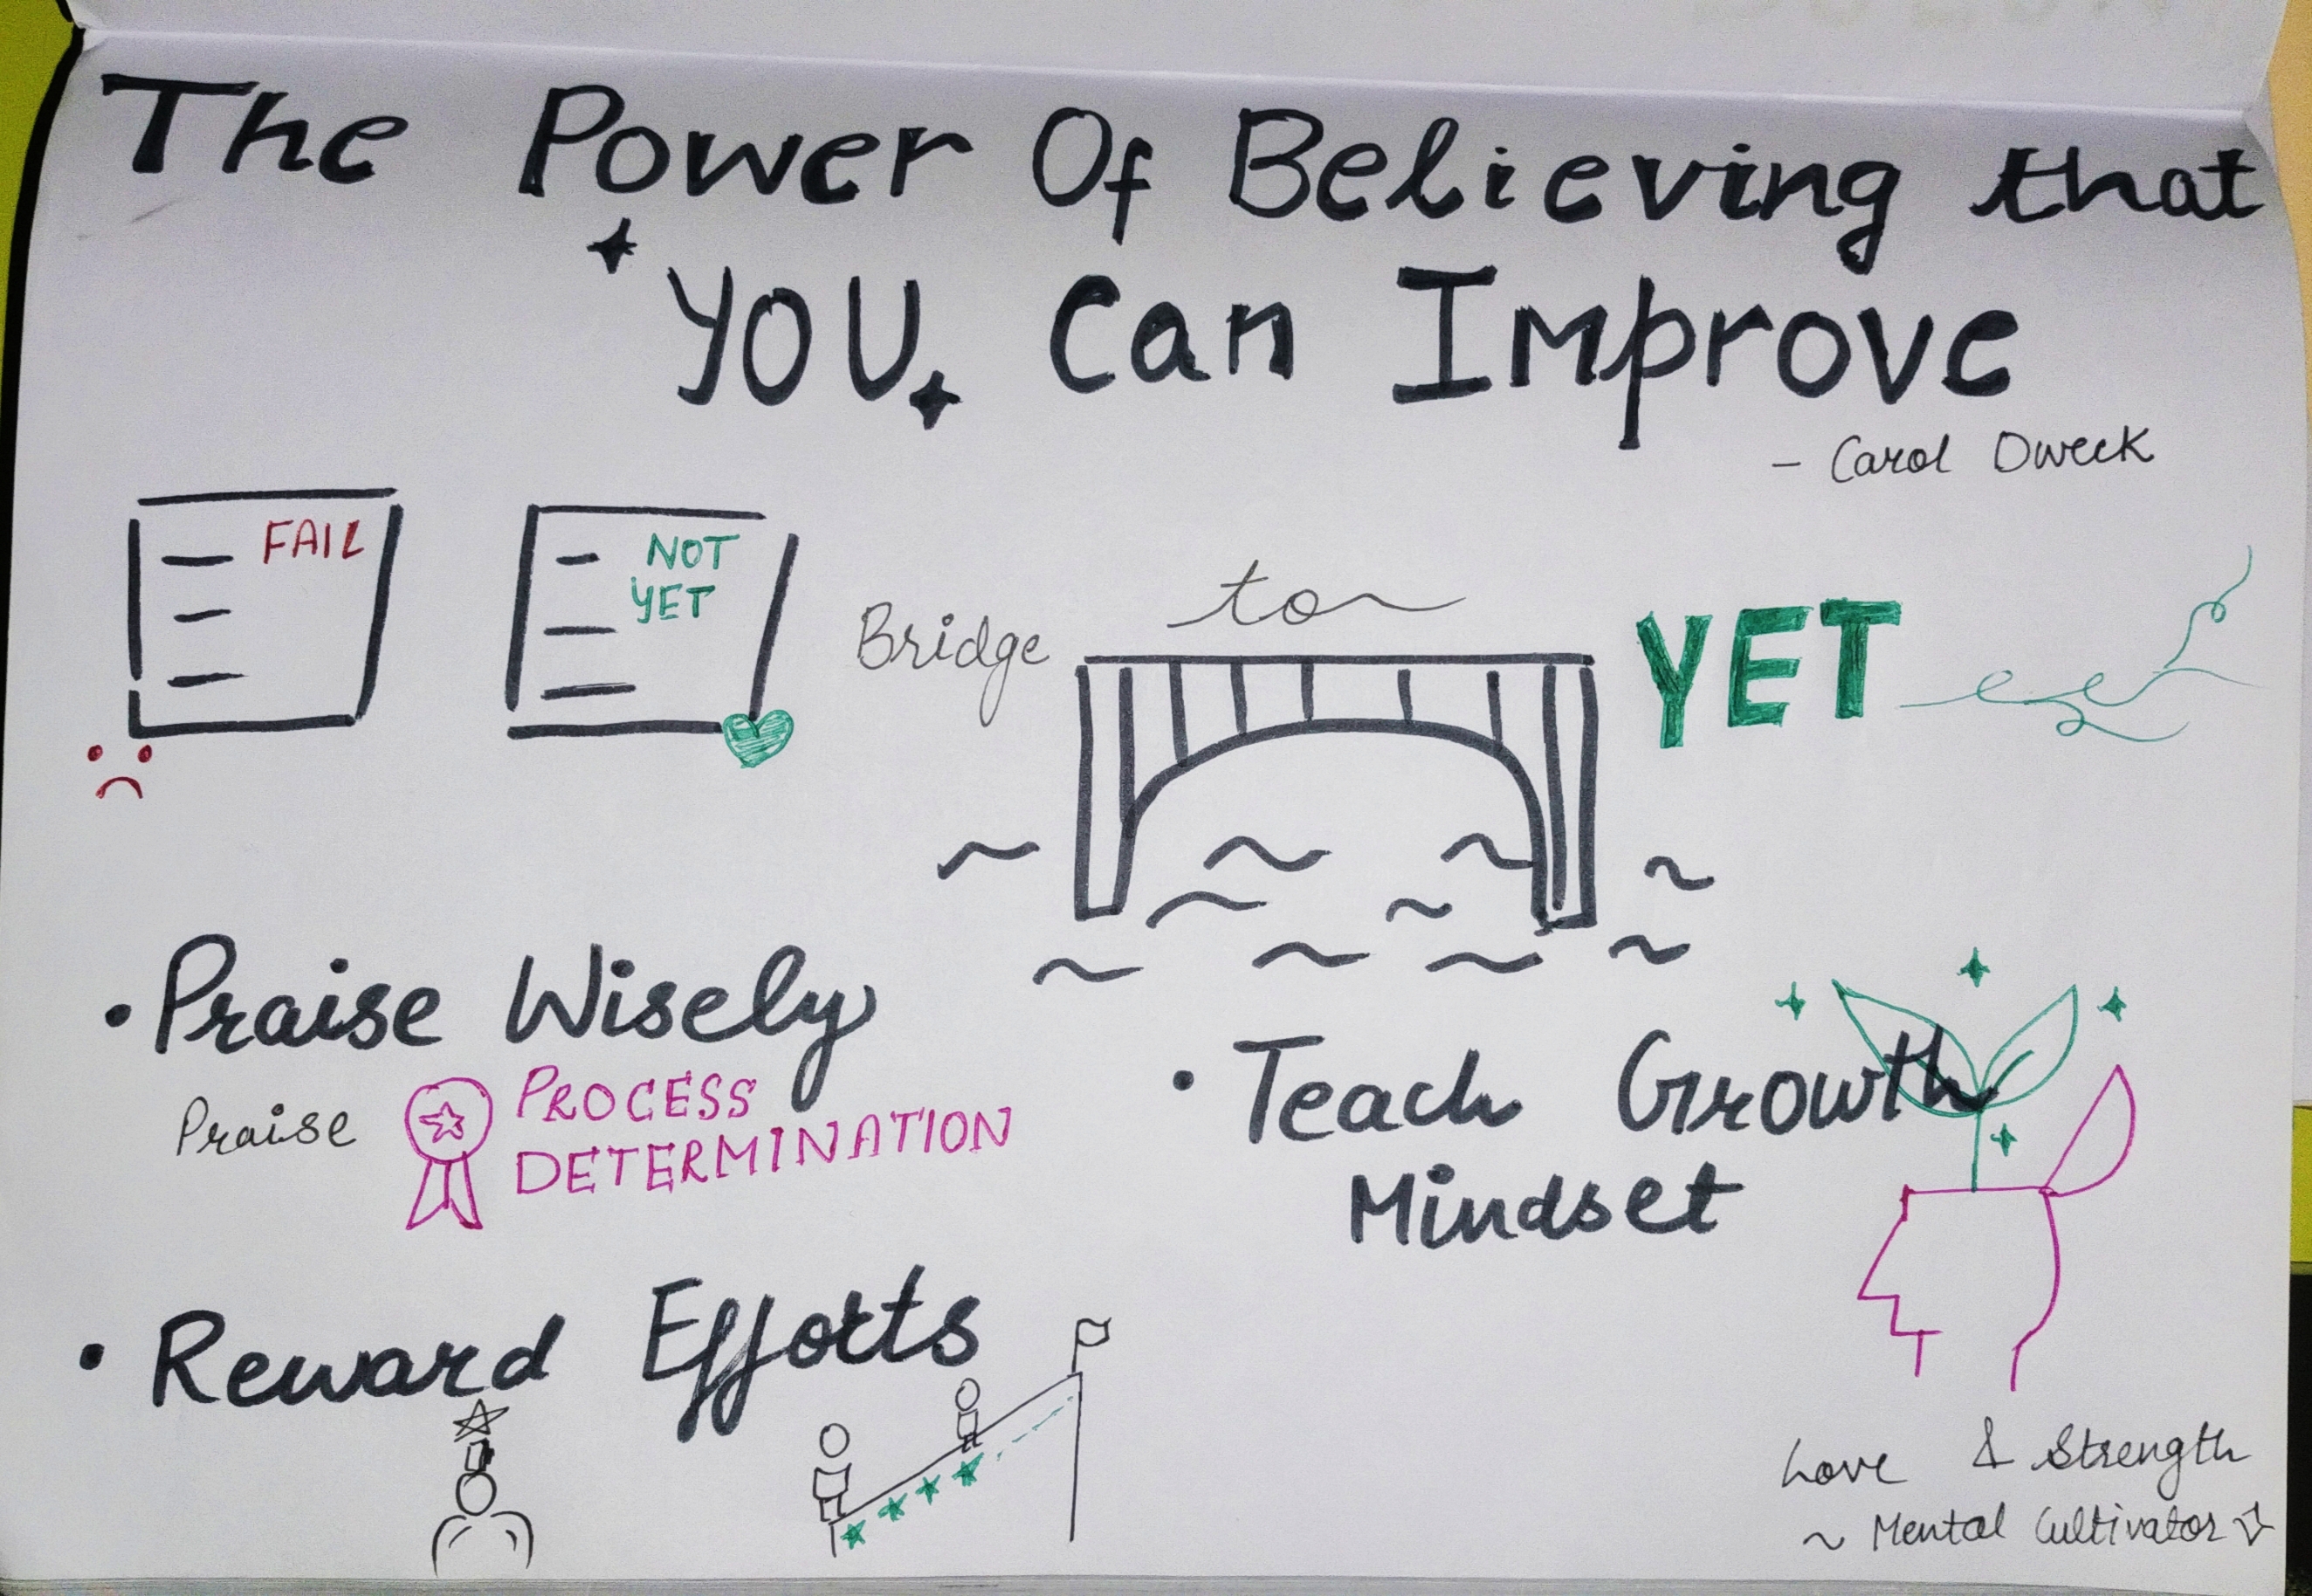 The Power Of Believing that
YOU Can Improve
- Carol Dweck
FAIL
NOT
YET
Bridge to YET
• Praise Wisely
Praise PROCESS
DETERMINATION
• Teach Growth
Mindset
• Reward Efforts
Love & Strength
~ Mental Cultivator